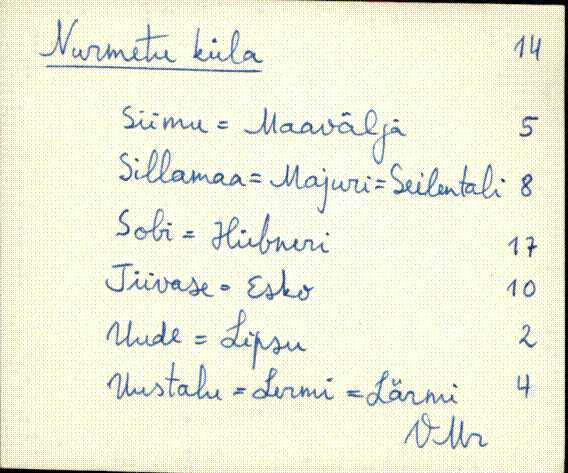 Nurmetu küla 14
Siimu = Maaväljä 5
Sillamaa = Majuri = Seilentali 8
Sobi = Hübneri 17
Tiivase = Esko 10
Uude = Lipsu 2
Uustalu = Lermi = Lärmi 4
VMr